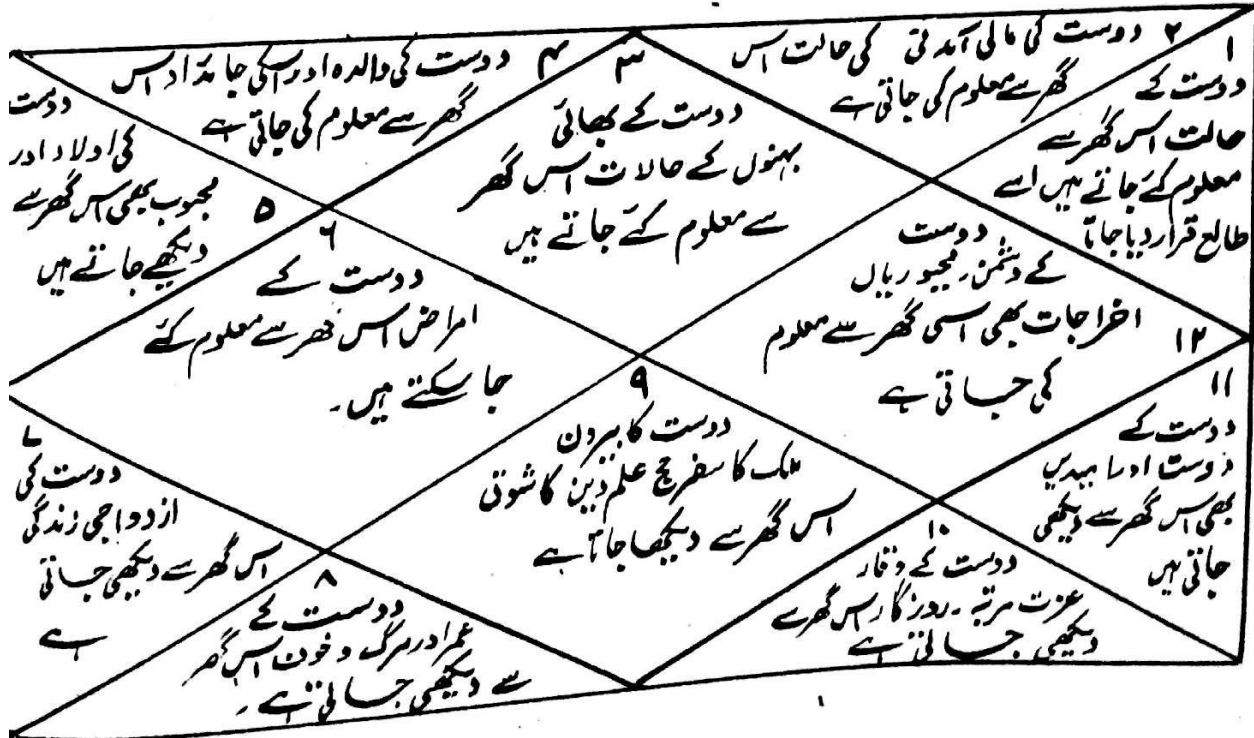 ۱
دوست کے
حالت اس گھر سے
معلوم کئے جاتے ہیں اسے
طالع قرار دیا جاتا
۲ دوست کی مالی آمدنی کی حالت اس
گھر سے معلوم کی جاتی ہے
۳
دوست کے بھائی
بہنوں کے حالات اس گھر
سے معلوم کئے جاتے ہیں
۴ دوست کی والدہ اور اسکی جائداد اس
گھر سے معلوم کی جاتی ہے
دوست
کی اولاد اور
محبوب بھی اس گھر سے
۵ دیکھے جاتے ہیں
۶
دوست کے
امراض اس گھر سے معلوم کئے
جا سکتے ہیں۔
۷
دوست کی
ازدواجی زندگی
اس گھر سے دیکھی جاتی
ہے
۸
دوست کے
عمر اور مرگ و خون اس گھر
سے دیکھی جاتی ہے۔
۹
دوست کا بیرون
ملک کا سفر حج علم دین کا شوق
اس گھر سے دیکھا جاتا ہے
۱۰
دوست کے وقار
عزت مرتبہ۔ روزگار اس گھر سے
دیکھی جاتی ہے
۱۱
دوست کے
دوست اور امیدیں
بھی اس گھر سے دیکھی
جاتی ہیں
دوست
کے دشمن
اخراجات بھی اسی گھر سے معلوم
۱۲
کی جاتی ہے